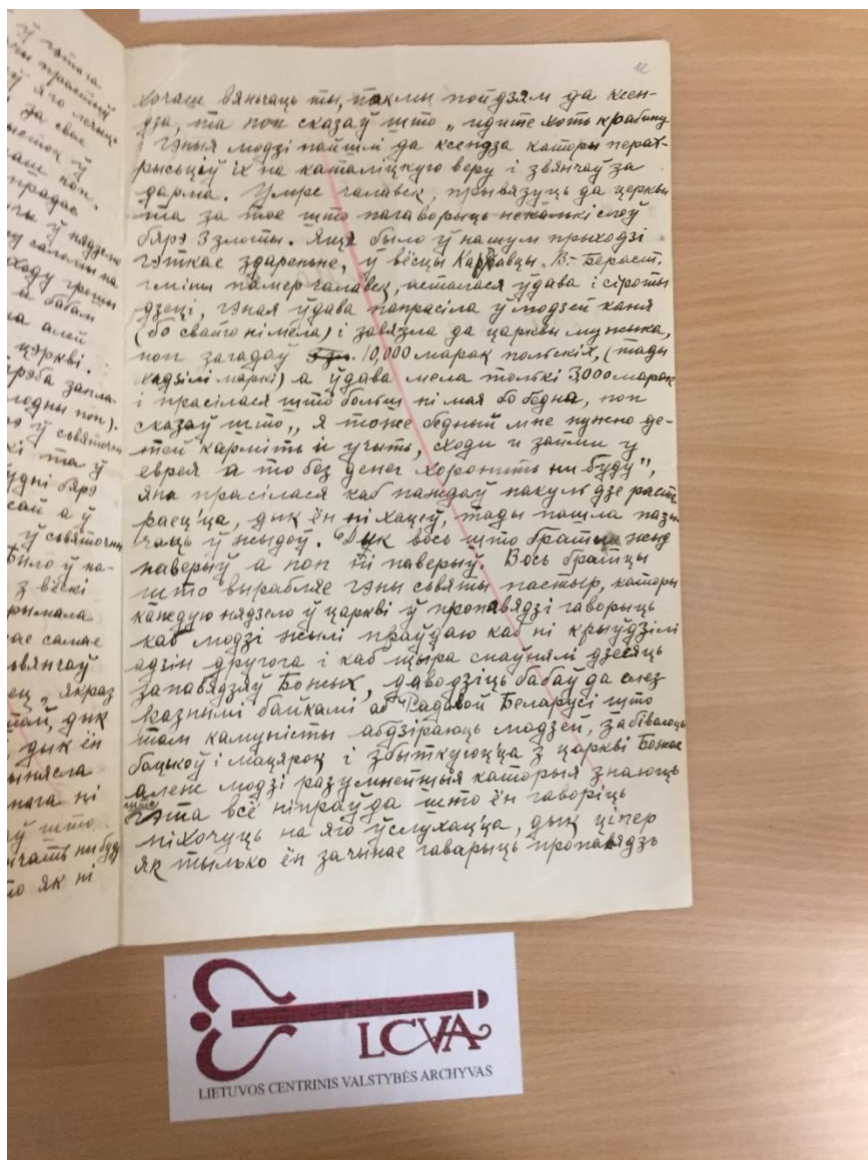 ў гэтага
ў яго
За свае
прадае
ў нядзелю
салому на
грошы
а бабам
алей
цэркві.
трэба запла-
поп).
ў сьвяточны
кі та ў
будні бярэ
а ў
ў сьвяточны
Было ў на-
з вёскі
самае
якраз
дык
дык ён
вынясла
нага ні
ў што
ни буду
то як ні
12
хочаш вяньчаць ты, такмы пойдзям да ксен-
дза, та поп сказаў што „идите хоть к рабину
гэныя людзі пайшлі да ксендза каторы перах-
рысьціў іх на каталіцкую веру і звянчаў за
дарма. Умре чалавек, прывязуць да церквы
та за тое што пагаворыць некалькі слоў
бярэ 3 злоты. Яще было ў нашум прыходзі
гэткае здареньне, ў вёсцы В-Берест.
гміны памер чалавек, асталася ўдава і сіроты
дзеці, гэная ўдава папрасіла ў людзей каня
(бо свайго німела) і завязла да царквы мужыка,
поп загадаў 10,000 марак польскіх, (тады
хадзілі маркі) а ўдава мела толькі 3,000 марак
і прасілася што больш ні мая бо бедна, поп
сказаў што „я тоже бедный мне нужно де-
тей карміть и учыть, сходи и займи у
еврея а то без денег хоронить ни буду",
яна прасілася каб паждаў пакуль дзе раст
раец'ца, дык ён ні хацеў, тады пашла пазы
чаць ў жыдоў. Дык вось што братцы жыд
паверыў а поп ні паверыў. Вось братцы
што вырабляе гэны сьвяты пастыр, каторы
каждую нядзелю ў царкві ў пропавядзі гаворыць
каб людзі жылі праўдаю каб ні крыўдзілі
адзін другога і каб щыра спаўнялі дзесяць
запавядзяў Божых, даводзіць бабаў да слез
казнымі байкамі аб Радавой Беларусі што
там камуністы абдзіраюць людзей, забіваюць
бацькоў і мацярок і збыткуюц'ца з царкві Божае
алеж людзі разумнейшыя каторыя знаюць
што
гэта всё ніпраўда што ён гаворіць
ніхочуць на яго ўслухац'ца, дык ціпер
як тылько ён зачынае гаварыць пропавядзь
LCVA
LIETUVOS CENTRINIS VALSTYBĖS ARCHYVAS